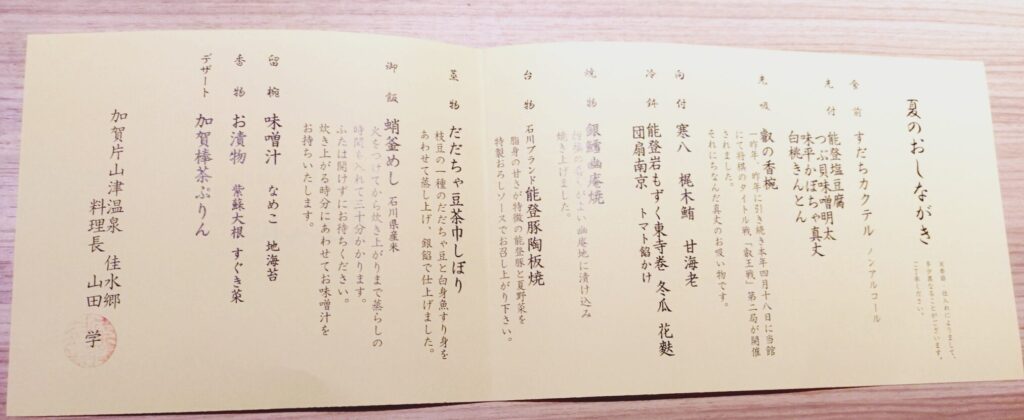 夏のおしながき
天候等、仕入れによりまして、
多少異なることがございます。
ご了承ください。
食前 すだちカクテル ノンアルコール
先付 能登塩豆腐
つぶ貝味噌明太
味平かぼちゃ真丈
白桃きんとん
先吸 叡の香椀
一昨年、昨年に引き続き本年四月十八日に当館
にて将棋のタイトル戦「叡王戦」第二局が開催
されました。
それにちなんだ真丈のお吸い物です。
向付 寒八 梶木鮪 甘海老
冷鉢 能登岩もずく東寺巻 冬瓜 花麩
団扇南京 トマト餡かけ
焼物 銀鱈幽庵焼
がよい幽庵地に漬け込み
焼き上げました。
台物 石川ブランド能登豚陶板焼
脂身の甘さが特徴の能登豚と夏野菜を
特製おろしソースでお召し上がり下さい。
蒸物 だだちゃ豆茶巾しぼり
枝豆の一種のだだちゃ豆と白身魚すり身を
あわせて蒸し上げ、銀餡で仕上げました。
御飯 蛸釜めし 石川県産米
火をつけてから炊き上がりまで蒸らしの
時間も入れて三十分かかります。
ふたは開けずにお待ちください。
炊き上がる時分にあわせてお味噌汁を
お持ちいたします。
留椀 味噌汁 なめこ 地海苔
香物 お漬物 紫蘇大根 すぐき菜
デザート 加賀棒茶ぷりん
加賀片山津温泉 佳水郷
料理長 山田 学